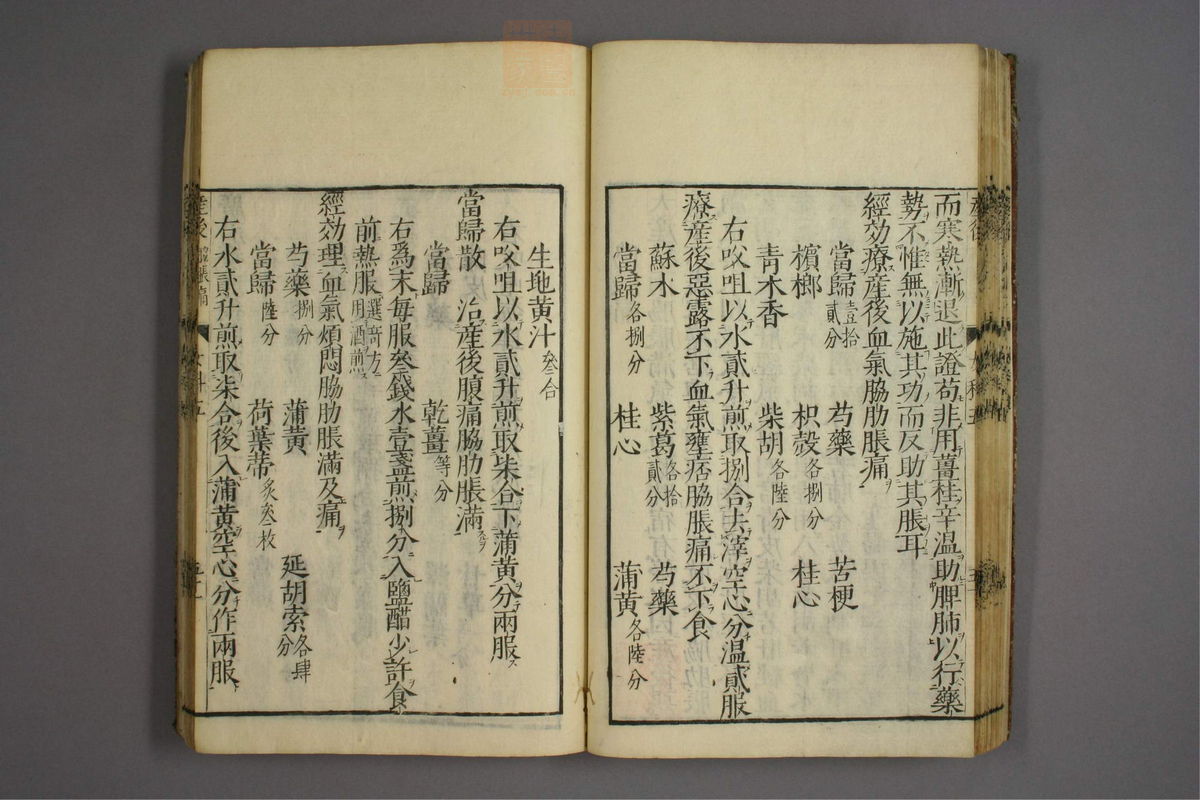 而寒熱漸退此證苟非用薑桂辛温助脾肺以行藥
勢不惟無以施其功而反助其脹耳
經効療産後血氣脇肋脹痛
當歸壹拾貳分 芍藥 苦梗
檳榔 枳殼各捌分 桂心
青木香 柴胡各陸分
右㕮咀以水貳升煎取捌合去滓空心分温貳服
療産後惡露不下血氣壅痞脇脹痛不下食
蘇木 紫葛各拾貳分 芍藥
當歸各捌分 桂心 蒲黄各陸分
生地黄汁叄合
右㕮咀以水貳升煎取柒合下蒲黄分兩服
當歸散 治産後腹痛脇肋脹滿
當歸 乾薑等分
右爲末每服叄錢水壹盞煎捌分入鹽醋少許食
前熱服選竒方用酒煎
經効理血氣煩悶脇肋脹滿及痛
芍藥捌分 蒲黄 延胡索各肆分
當歸陸分 荷葉蒂炙叄枚
右水貳升煎取柒合後入蒲黄空心分作兩服
産後